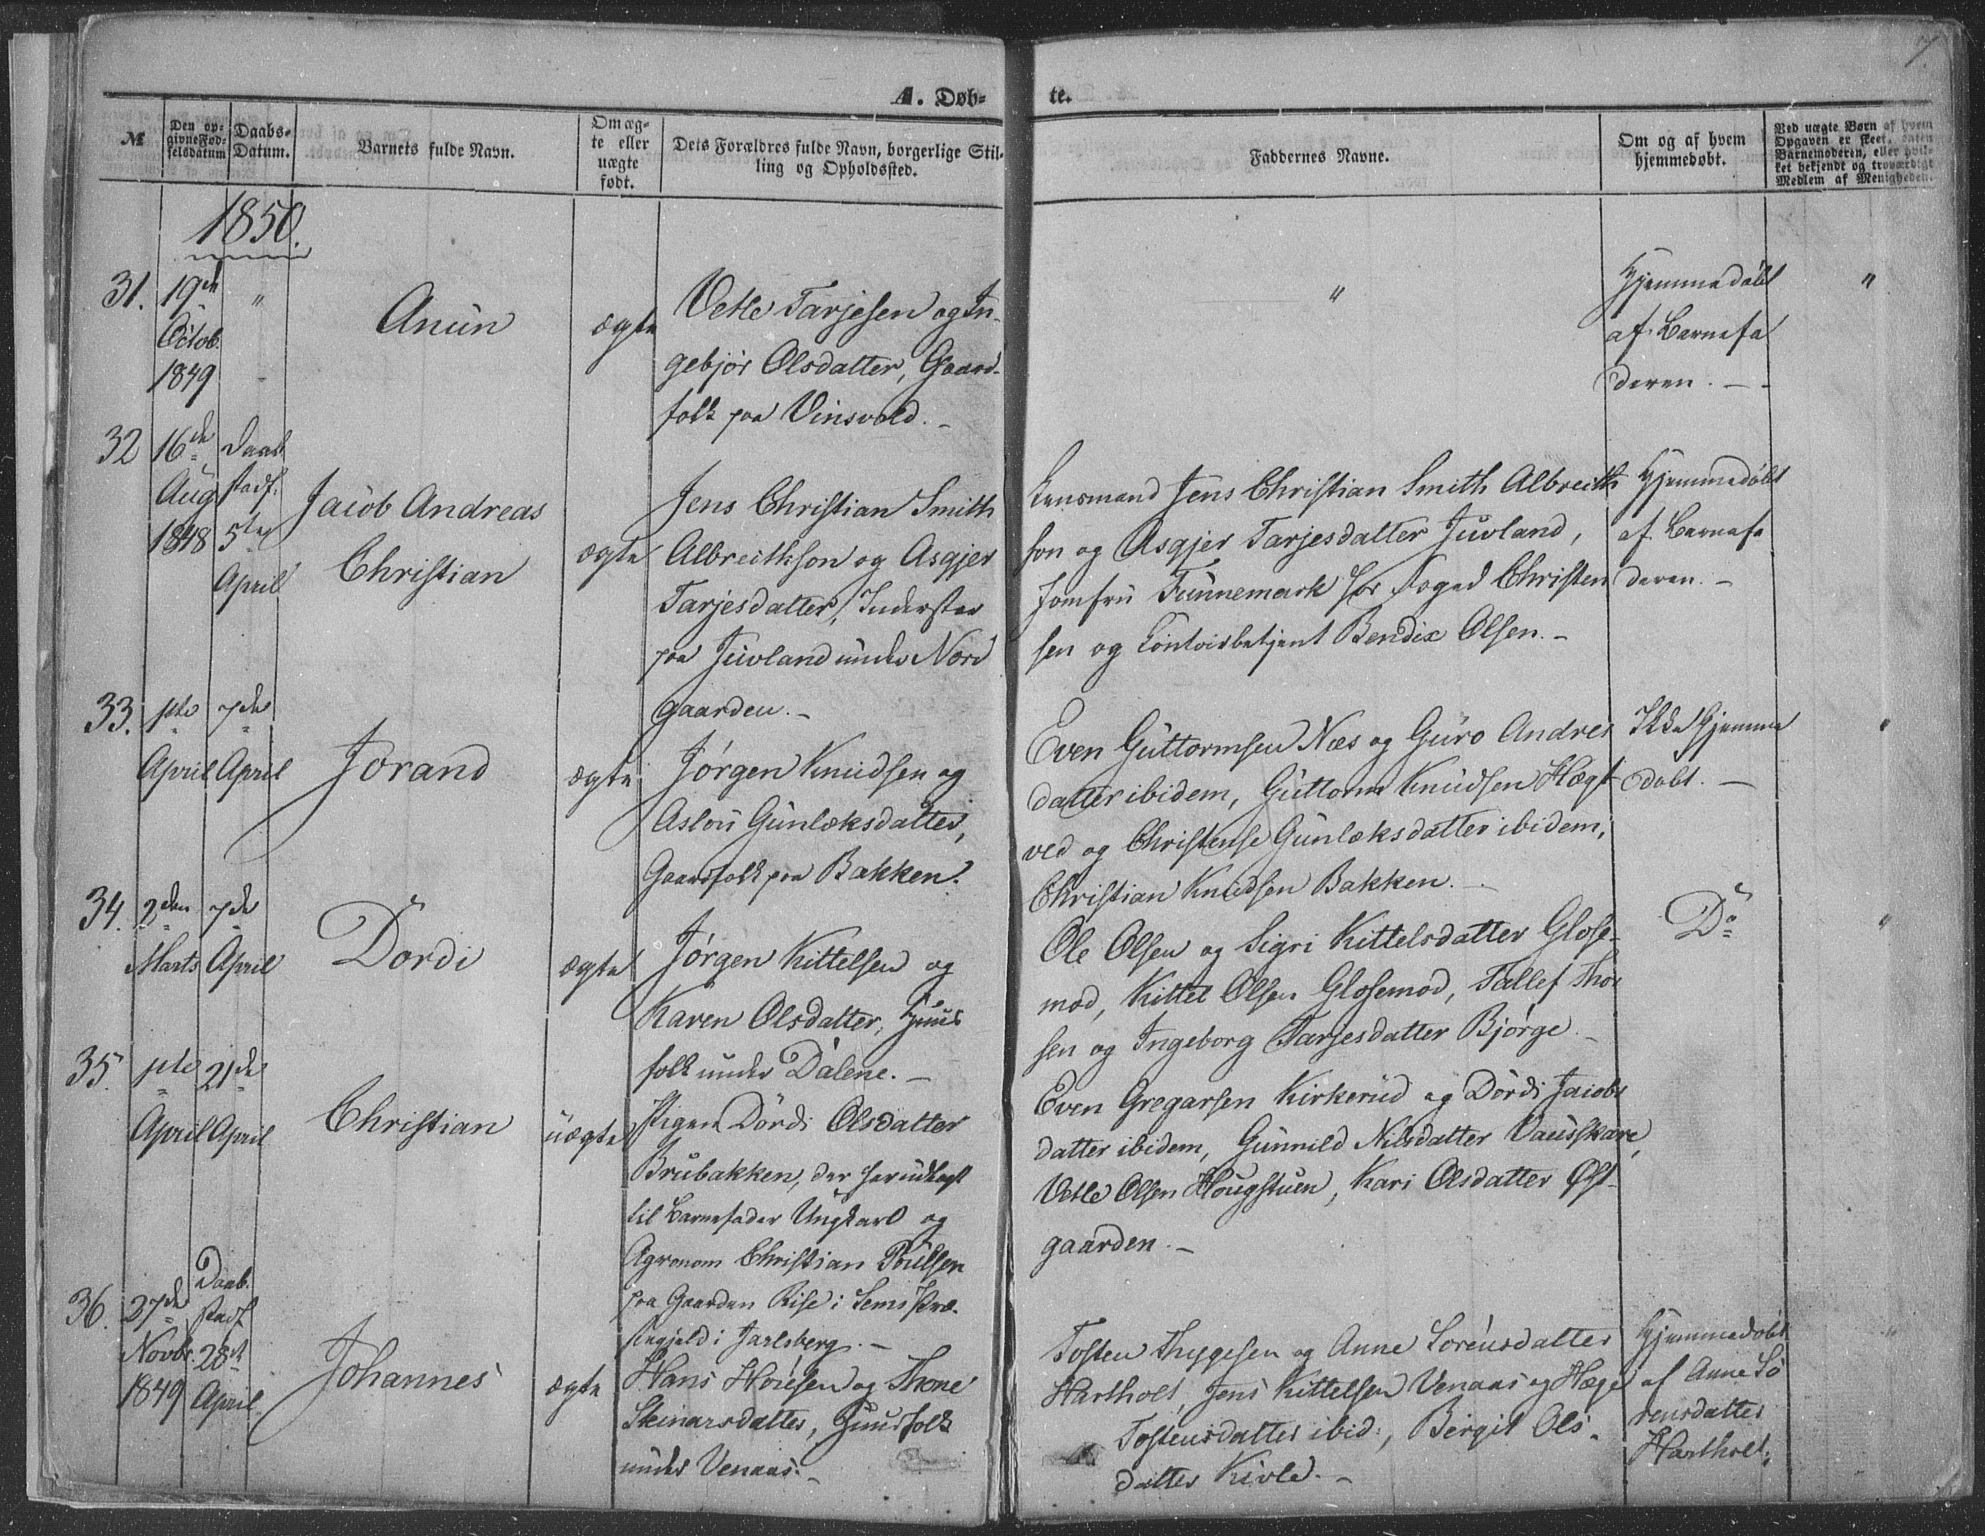 7.
A. Døb-
te.
№
Den op-
givne Fød-
selsdatum
Daabs-
Datum.
Barnets fulde Navn.
Om æg-
te eller
uægte
født.
Dets Forældres fulde Navn, borgerlige Stil-
ling og Opholdssted.
Faddernes Navne.
Om og af hvem
hjemmedøbt.
Ved uægte Børn af hvem
Opgaven er skeet, enten
Barnemoderen, eller hvil-
ket bekjendt og troværdigt
Medlem af Menigheden.
1850.
31.
19de
Octob.
1849
"
Anun
ægte
Vetle Tarjesen og In-
gebjør Olsdatter, Gaard-
folk paa Vinsvald. -
"
Hjemmedøbt
af Barnefa
deren. - -
"
32
16de
Aug
1848
Daab
stadf.
5te
April
Jacob Andreas
Christian
ægte
Jens Christian Smith
Albreithson og Asgjer
Tarjesdatter, Inderster
paa Juvland under Nord
gaarden. -
Lensmand Jens Christian Smith Albreith
son og Asgjer Tarjesdatter Juvland,
Jomfru Tunnemark hos Foged Christen
sen og Contoirbetjent Bendix Olsen. -
Hjemmedøbt
af Barnefa
deren. -
33.
1ste
April
7de
April
Jorand
ægte
Jørgen Knudsen og
Aslou Gunlæksdatter,
Gaardfolk paa Bakken.
Even Guttormsen Næs og Guro Andres
datter ibidem, Guttorm Knudsen Hægt
ved og Christense Gunlæksdatter ibidem,
Christian Knudsen Bakken. -
Ikke Hjemme
døbt. -
"
34.
2den
Marts
7de
April
Dordi
ægte
Jørgen Kittelsen og
Karen Olsdatter, Huus
folk under Dalene. -
Ole Olsen og Sigri Kittelsdatter Glose-
mod, Kittel Olsen Glosemod, Tallef Thor
sen og Ingeborg Tarjesdatter Bjørge -
Do
"
35.
1ste
April
21de
April
Christian
uægte
Pigen Dordi Olsdatter
Brubakken, der har udlagt
til Barnefader Ungkarl og
Agronom Christian Poulsen
paa Gaarden Rise i Sems Præ-
stegjeld i Jarlsberg. -
Even Gregarsen Kirkerud og Dordi Jacobs
datter ibidem, Gunnild Nilsdatter Vaasskare,
Vetle Olsen Hougstuen, Kari Olsdatter Øst-
gaarden. -
36.
27de
Novbr.
1849
Daab.
stadf
28de
April.
Johannes
ægte
Hans Hovesen og Thone
Steinarsdatter, Huusfolk
under Venaas. -
Tosten Thygesen og Anne Sørensdatter
Hartholt, Jens Kittelsen Venaas og Hæge
Tostensdatter ibid., Bergit Ols-
datter Kivle. -
Hjemmedøbt
af Anne Sø
rensdatter
Hartholt.
"